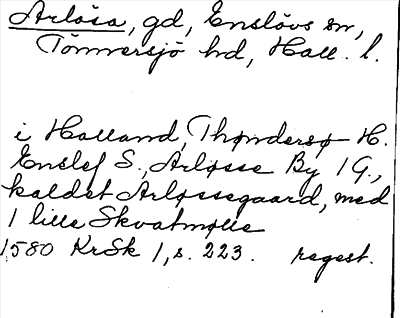 Arlösa, gd, Enslövs sn,
Tönnersjö hd, Hall. l.
i Halland, Thøndersø H.
Enslef S., Arløsse By 1 G.,
kaldet Arløssegaard, med
1 lille Skvatmølle
1580 KrSk 1, s. 223. regest.